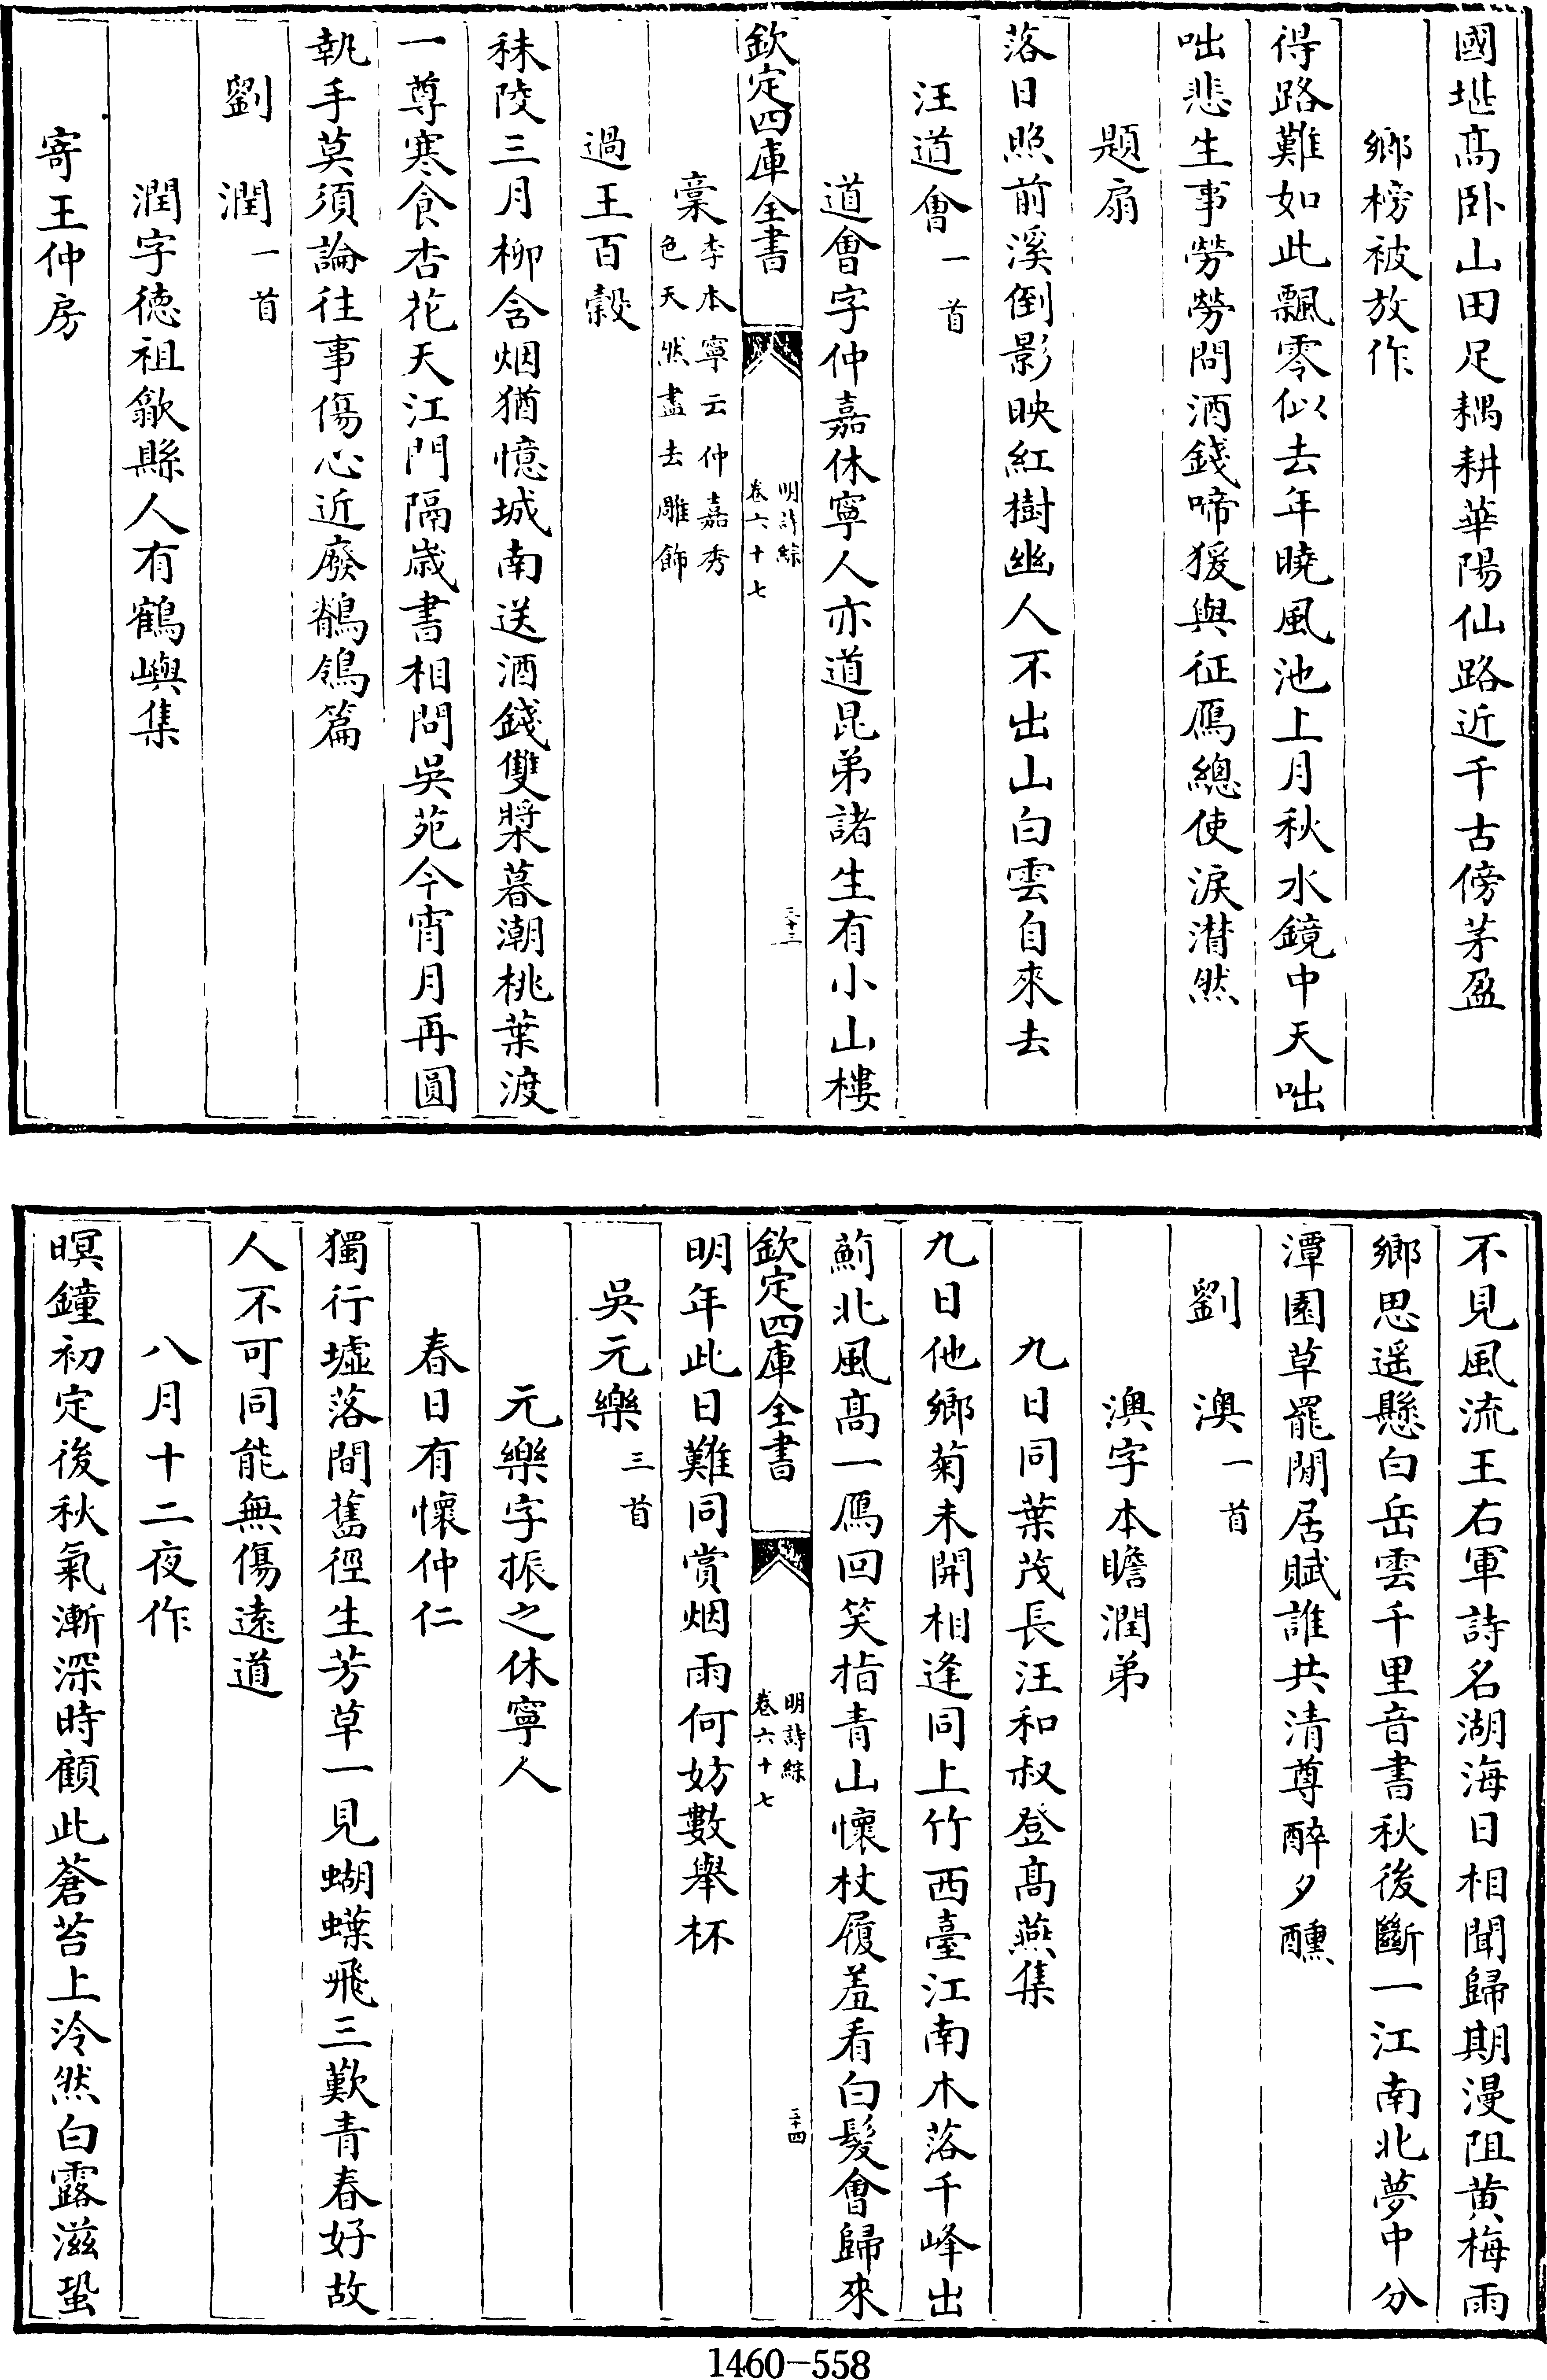 國堪髙卧山田足耦耕華陽仙路近千古傍茅盈
鄉榜被放作
得路難如此飄零似去年曉風池上月秋水鏡中天咄
咄悲生事勞勞問酒錢啼猨與征鴈總使淚潸然
題扇
落日照前溪倒影映紅樹幽人不出山白雲自來去
汪道會一首
道會字仲嘉休寧人亦道昆弟諸生有小山樓
欽定四庫全書
明詩綜
卷六十七
三十三
槀李本寧云仲嘉秀
色天然盡去雕飾
過王百糓
秣陵三月柳含烟猶憶城南送酒錢雙槳暮潮桃葉渡
一尊寒食杏花天江門隔歳書相問吳苑今宵月再圓
執手莫須論往事傷心近廢鶺鴒篇
劉潤一首
潤字徳祖歙縣人有鶴嶼集
寄王仲房
不見風流王右軍詩名湖海日相聞歸期漫阻黄梅雨
鄉思遥懸白岳雲千里音書秋後斷一江南北夢中分
潭園草罷閒居賦誰共清尊醉夕醺
劉澳一首
澳字本瞻潤弟
九日同葉茂長汪和叔登髙燕集
九日他鄉菊未開相逢同上竹西臺江南木落千峰出
薊北風髙一鴈回笑指青山懷杖履羞看白髮會歸來
欽定四庫全書
明詩綜
卷六十七
三十四
明年此日難同賞烟雨何妨數舉杯
吳元樂三首
元樂字振之休寧人
春日有懷仲仁
獨行墟落間舊徑生芳草一見蝴蝶飛三歎青春好故
人不可同能無傷遠道
八月十二夜作
暝鐘初定後秋氣漸深時顧此蒼苔上泠然白露滋蛩
1460-558